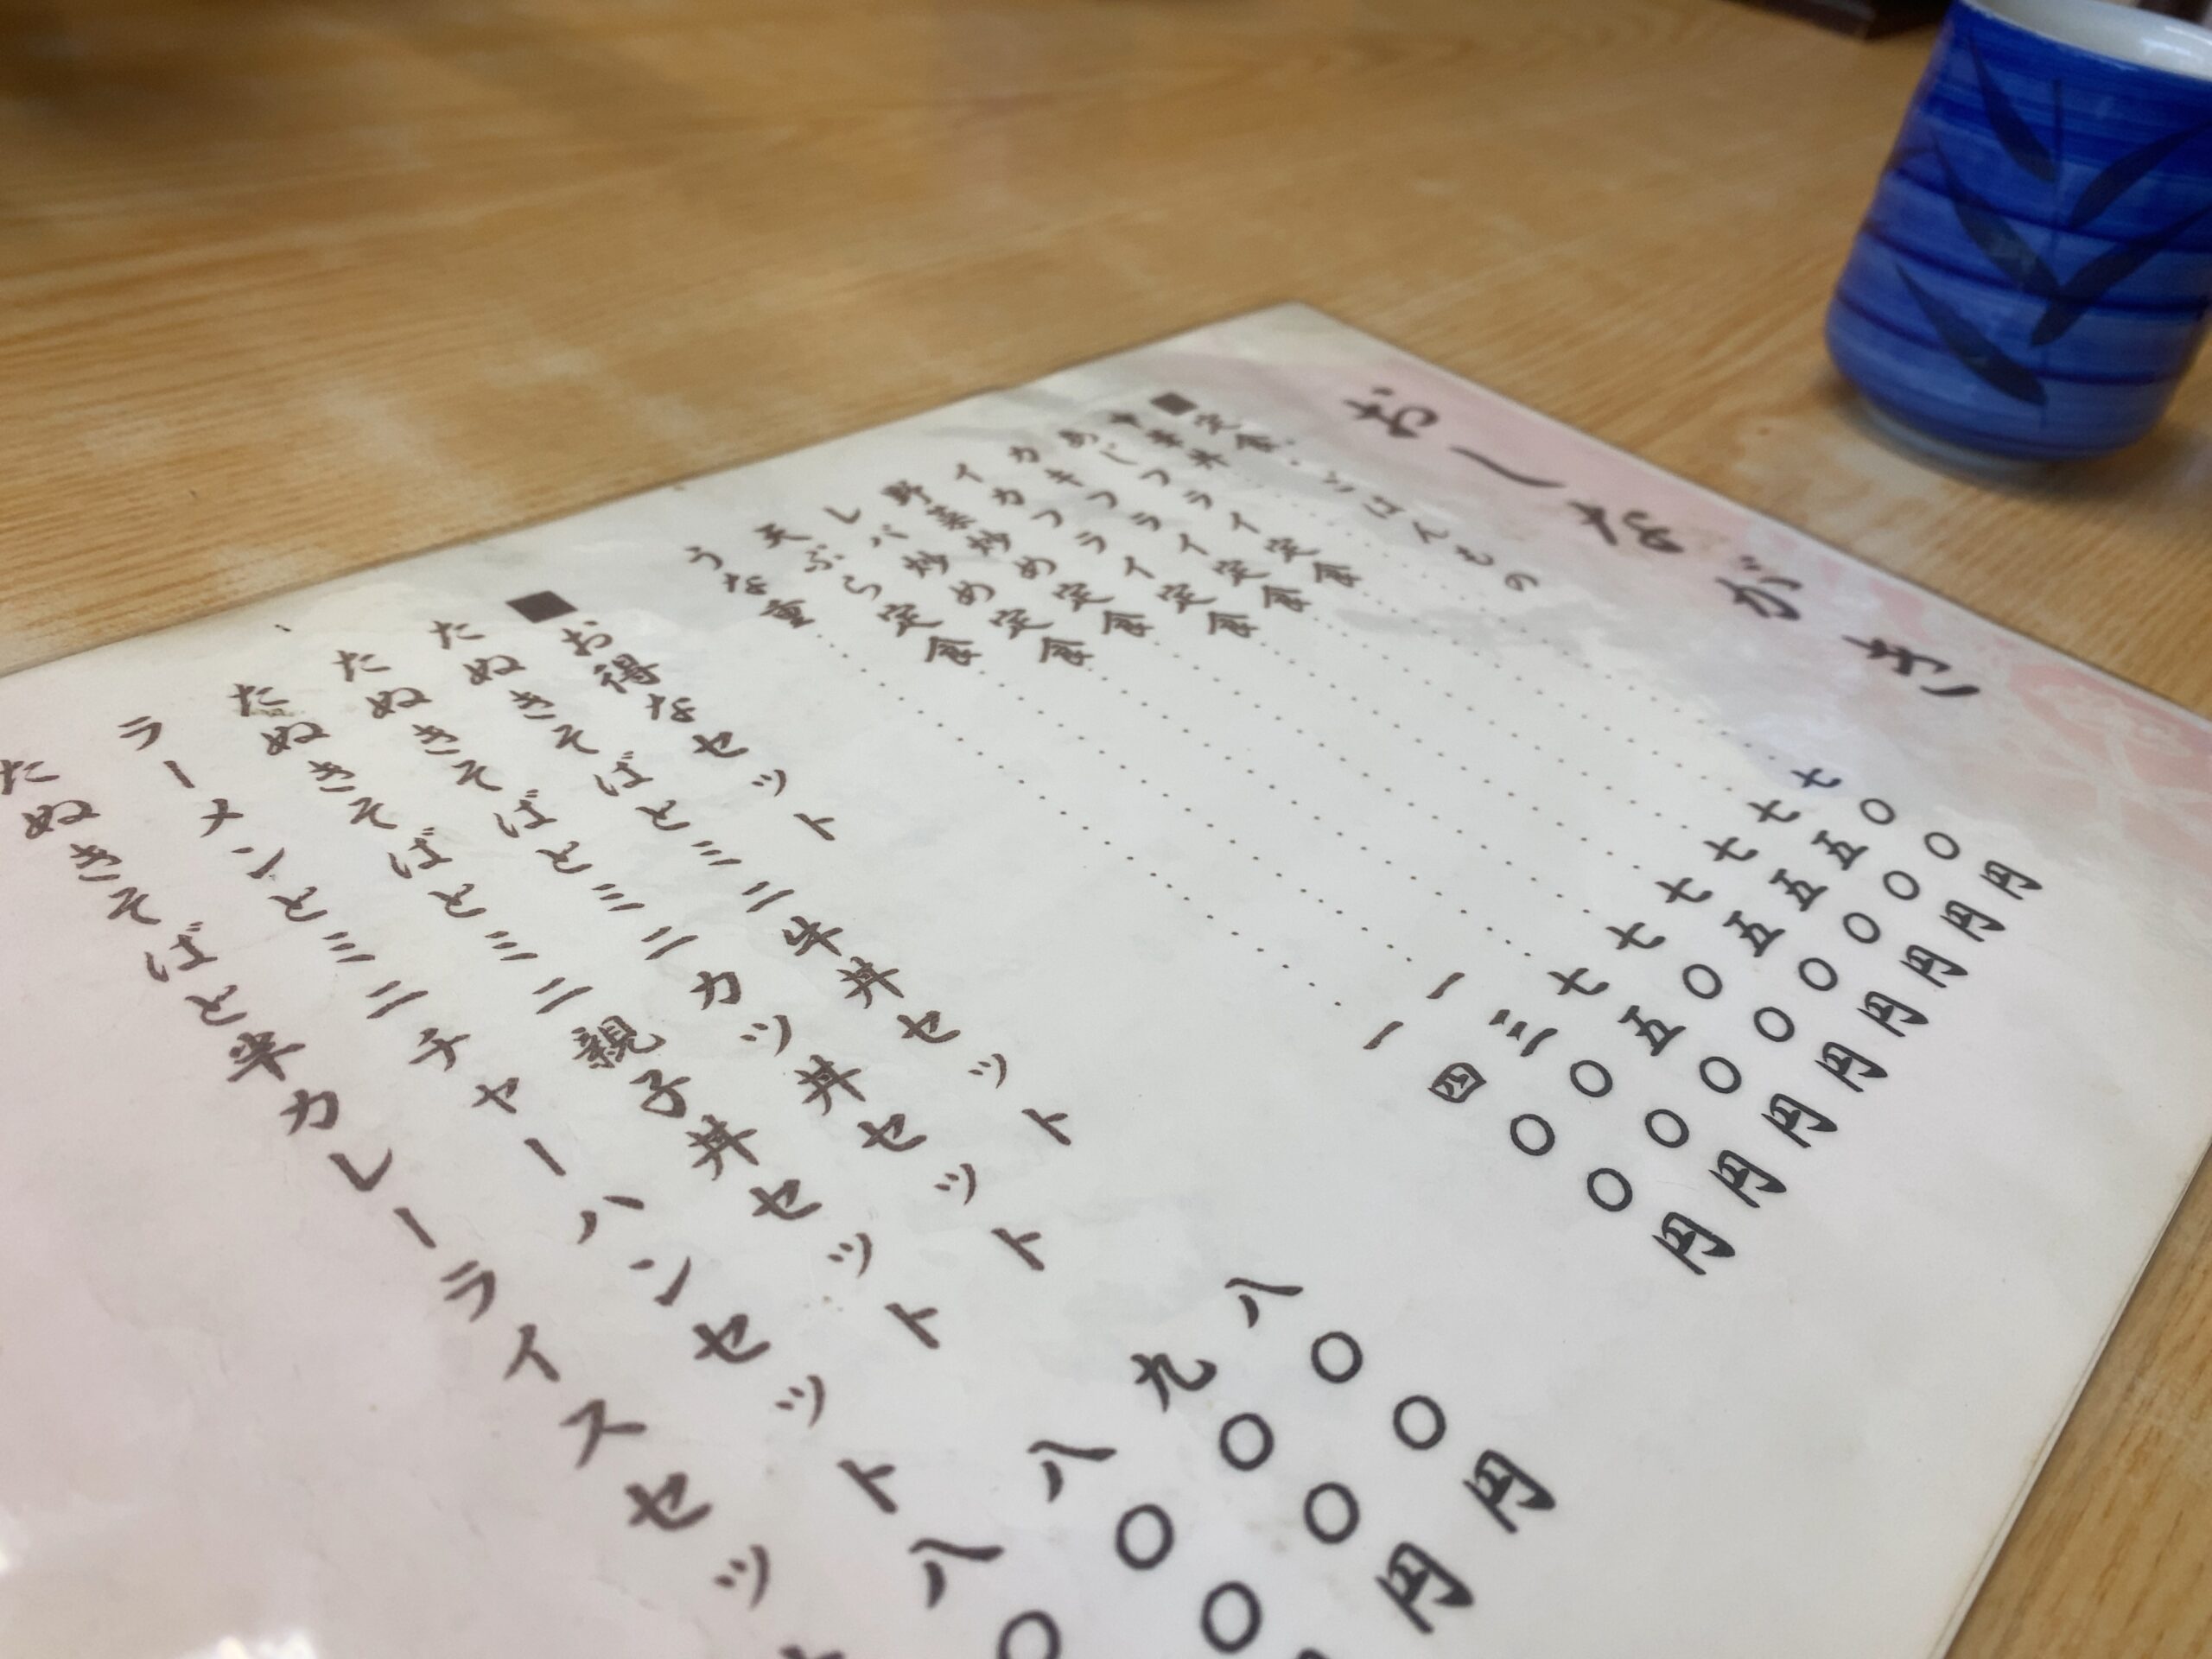 おしながき
■定食・ごはんもの
牛丼……七〇〇円
あじフライ定食……七五〇円
カキフライ定食……七五〇円
イカフライ定食……七五〇円
野菜炒め定食……七〇〇円
レバ炒め定食……七五〇円
天ぷら定食……一三〇〇円
うな重……一四〇〇円
■お得なセット
たぬきそばとミニ牛丼セット 八〇〇円
たぬきそばとミニカツ丼セット 九〇〇円
たぬきそばとミニ親子丼セット 八〇〇円
ラーメンとミニチャーハンセット 八〇
たぬきそばと半カレーライスセット